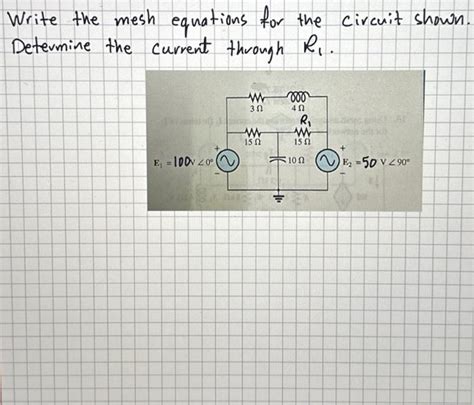 Write the mesh equations for the circuit shown.
Determine the current through R₁.
3 Ω
4 Ω
R₁
15 Ω
15 Ω
+
+
E₁ = 100V ∠0°
10 Ω
E₂ = 50 V ∠ 90°
−
−